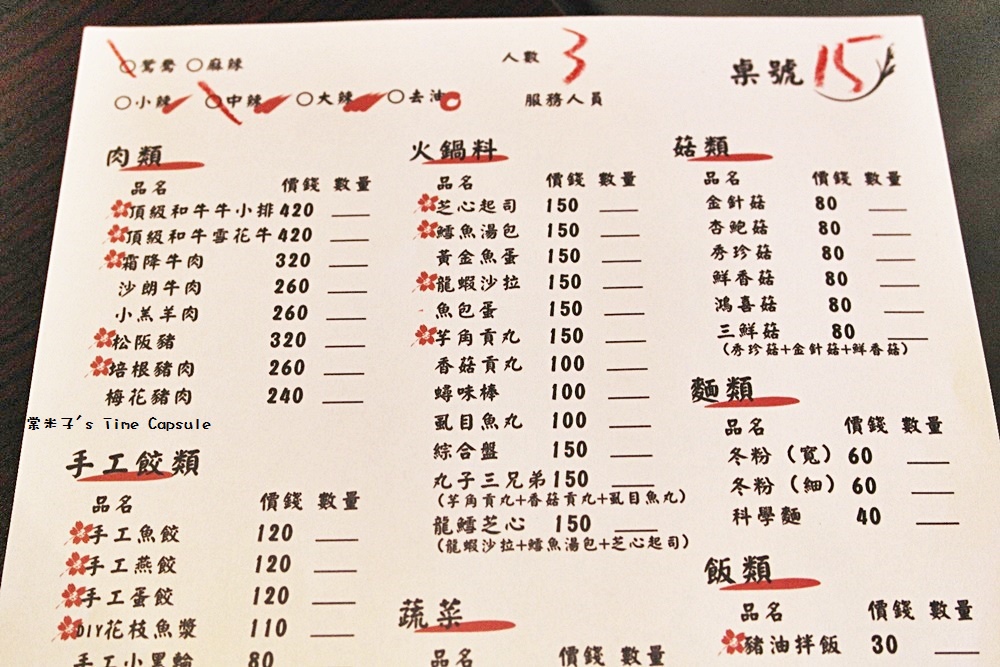 鴛鴦 麻辣
人數 3
桌號 15
小辣 中辣 大辣 去油
服務人員
肉類
品名 價錢 數量
頂級和牛牛小排 420
頂級和牛雪花牛 420
霜降牛肉 320
沙朗牛肉 260
小羔羊肉 260
松阪豬 320
培根豬肉 260
梅花豬肉 240
米子's Time Capsule
手工餃類
品名 價錢 數量
手工魚餃 120
手工燕餃 120
手工蛋餃 120
DIY花枝魚漿 110
手工小黑輪 80
火鍋料
品名 價錢 數量
芝心起司 150
鱈魚湯包 150
黃金魚蛋 150
龍蝦沙拉 150
魚包蛋 150
芋角貢丸 150
香菇貢丸 100
蟳味棒 100
虱目魚丸 100
綜合盤 150
丸子三兄弟 150
(芋角貢丸+香菇貢丸+虱目魚丸)
龍鱈芝心 150
(龍蝦沙拉+鱈魚湯包+芝心起司)
蔬菜
品名 價錢 數量
菇類
品名 價錢 數量
金針菇 80
杏鮑菇 80
秀珍菇 80
鮮香菇 80
鴻喜菇 80
三鮮菇 80
(秀珍菇+金針菇+鮮香菇)
麵類
品名 價錢 數量
冬粉（寬） 60
冬粉（細） 60
科學麵 40
飯類
品名 價錢 數量
豬油拌飯 30